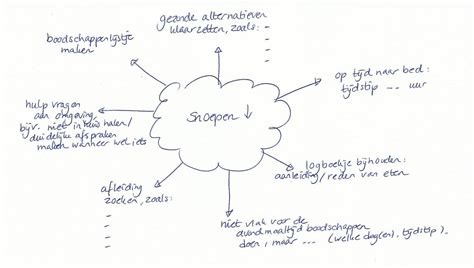 gezonde alternatieven
klaarzetten, zoals:
-
-
-
-
boodschappenlijstje
maken
op tijd naar bed:
tijdstip ... uur
hulp vragen
aan omgeving
bijv. niet in huis halen/
duidelijke afspraken
maken wanneer wel iets
Snoepen ↓
logboekje bijhouden:
aanleiding/reden van eten
afleiding
zoeken, zoals:
-
-
-
-
niet vlak voor de
avondmaaltijd boodschappen
doen, maar ... (welke dag(en), tijdstip).